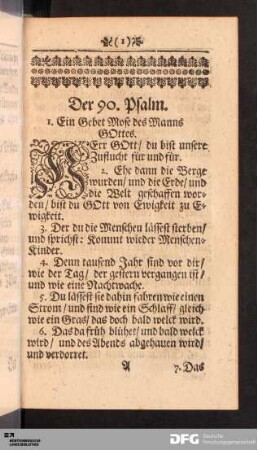 (1)
Der 90. Psalm.
1. Ein Gebet Mose des Manns
GOttes.
HErr GOtt/ du bist unsere
Zuflucht für und für.
2. Ehe dann die Berge
wurden/ und die Erde/ und
die Welt geschaffen wor-
den/ bist du GOtt von Ewigkeit zu E-
wigkeit.
3. Der du die Menschen lässest sterben/
und sprichst: Kommt wieder Menschen-
Kinder.
4. Denn tausend Jahr sind vor dir/
wie der Tag/ der gestern vergangen ist/
und wie eine Nachtwache.
5. Du lässest sie dahin fahren wie einen
Strom/ und sind wie ein Schlaff/ gleich
wie ein Gras/ das doch bald welck wird.
6. Das da früh blühet/ und bald welck
wird/ und des Abends abgehauen wird/
und verdorret.
A 7. Das
DFG Deutsche
Forschungsgemeinschaft